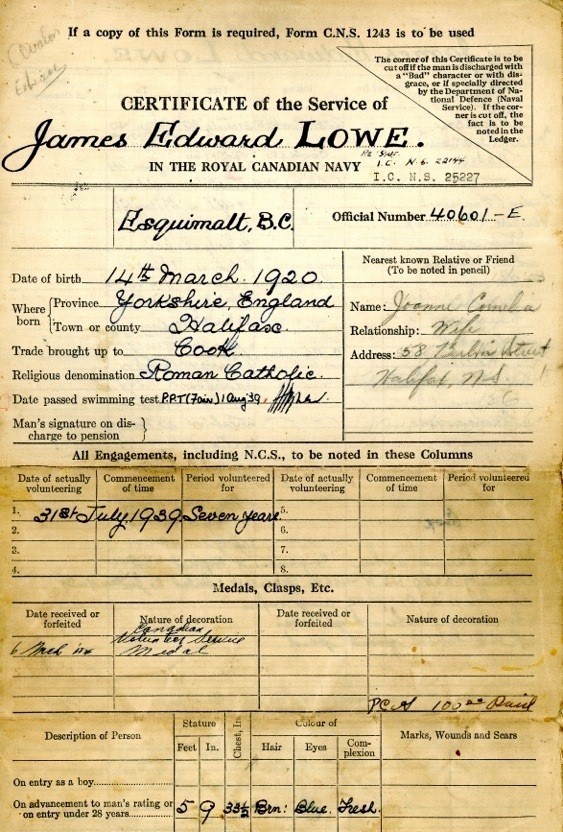 If a copy of this Form is required, Form C.N.S. 1243 is to be used
The corner of this Certificate is to be
cut off if the man is discharged with
a "Bad" character or with dis-
grace, or if specially directed
by the Department of Na-
tional Defence (Naval
Service). If the cor-
ner is cut off, the
fact is to be
noted in the
Ledger.
CERTIFICATE of the Service of
James Edward LOWE.
IN THE ROYAL CANADIAN NAVY
I.C. N.S. 22144
I.C. N.S. 25227
Esquimalt, B.C.
Official Number 40601-E
Date of birth 14th March. 1920.
Where born
Province Yorkshire, England
Town or county Halifax.
Trade brought up to Cook
Religious denomination Roman Catholic.
Date passed swimming test P.P.T (Fair) 1 Aug 39
Man's signature on dis-
charge to pension
Nearest known Relative or Friend
(To be noted in pencil)
Name: Joanne
Relationship: Wife
Address: 58 Street
Halifax, N.S.
All Engagements, including N.C.S., to be noted in these Columns
Date of actually volunteering Commencement of time Period volunteered for Date of actually volunteering Commencement of time Period volunteered for
1. 31st July, 1939. Seven years 5.
2. 6.
3. 7.
4. 8.
Medals, Clasps, Etc.
Date received or forfeited Nature of decoration Date received or forfeited Nature of decoration
Canadian
Volunteer Service
Medal
100.00 Paid
Description of Person Stature Feet In. Chest, In. Colour of Hair Eyes Com-plexion Marks, Wounds and Scars
On entry as a boy
On advancement to man's rating or
on entry under 28 years 5 9 33½ Brn: Blue. Fresh.